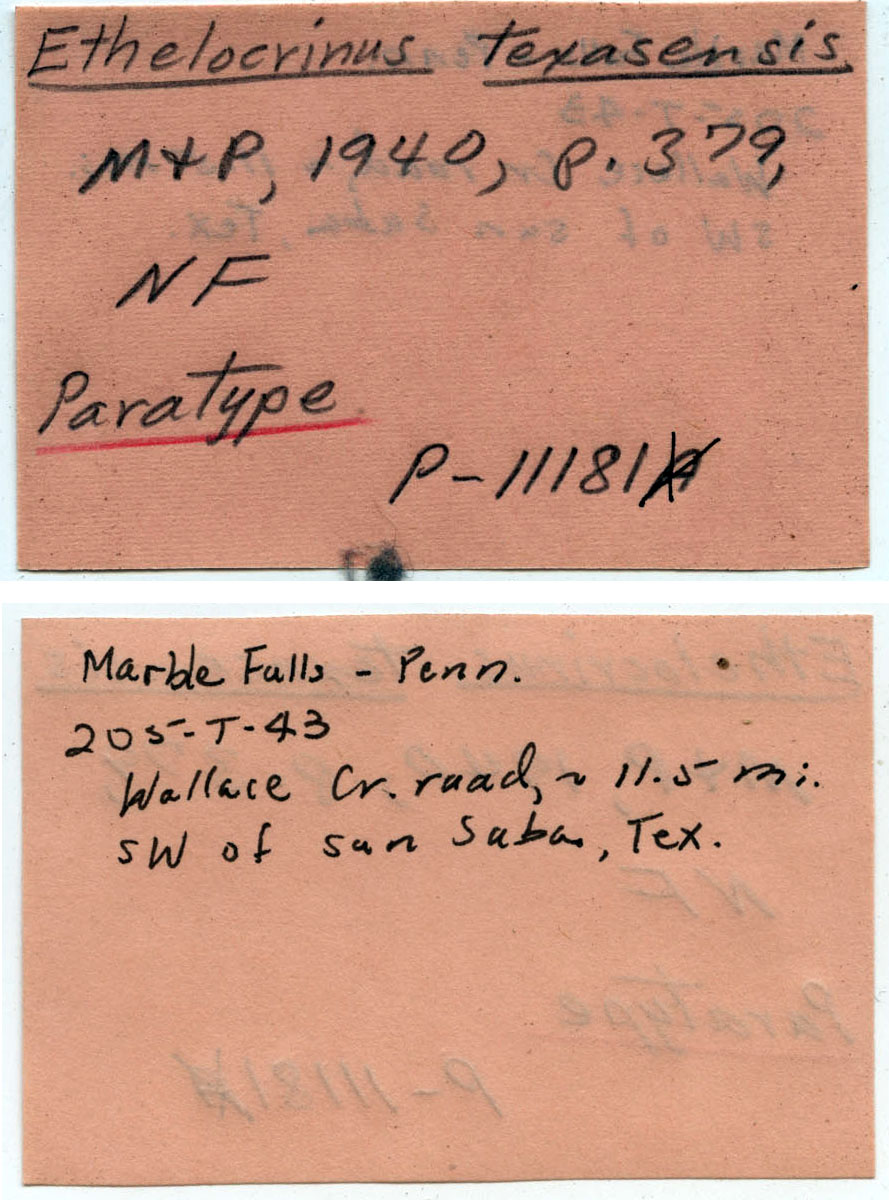 Ethelocrinus texasensis
M+P, 1940, p. 379,
NF
Paratype
P-11181
Marble Falls - Penn.
205-T-43
Wallace Cr. road, ~ 11.5 mi.
SW of san Saba, Tex.